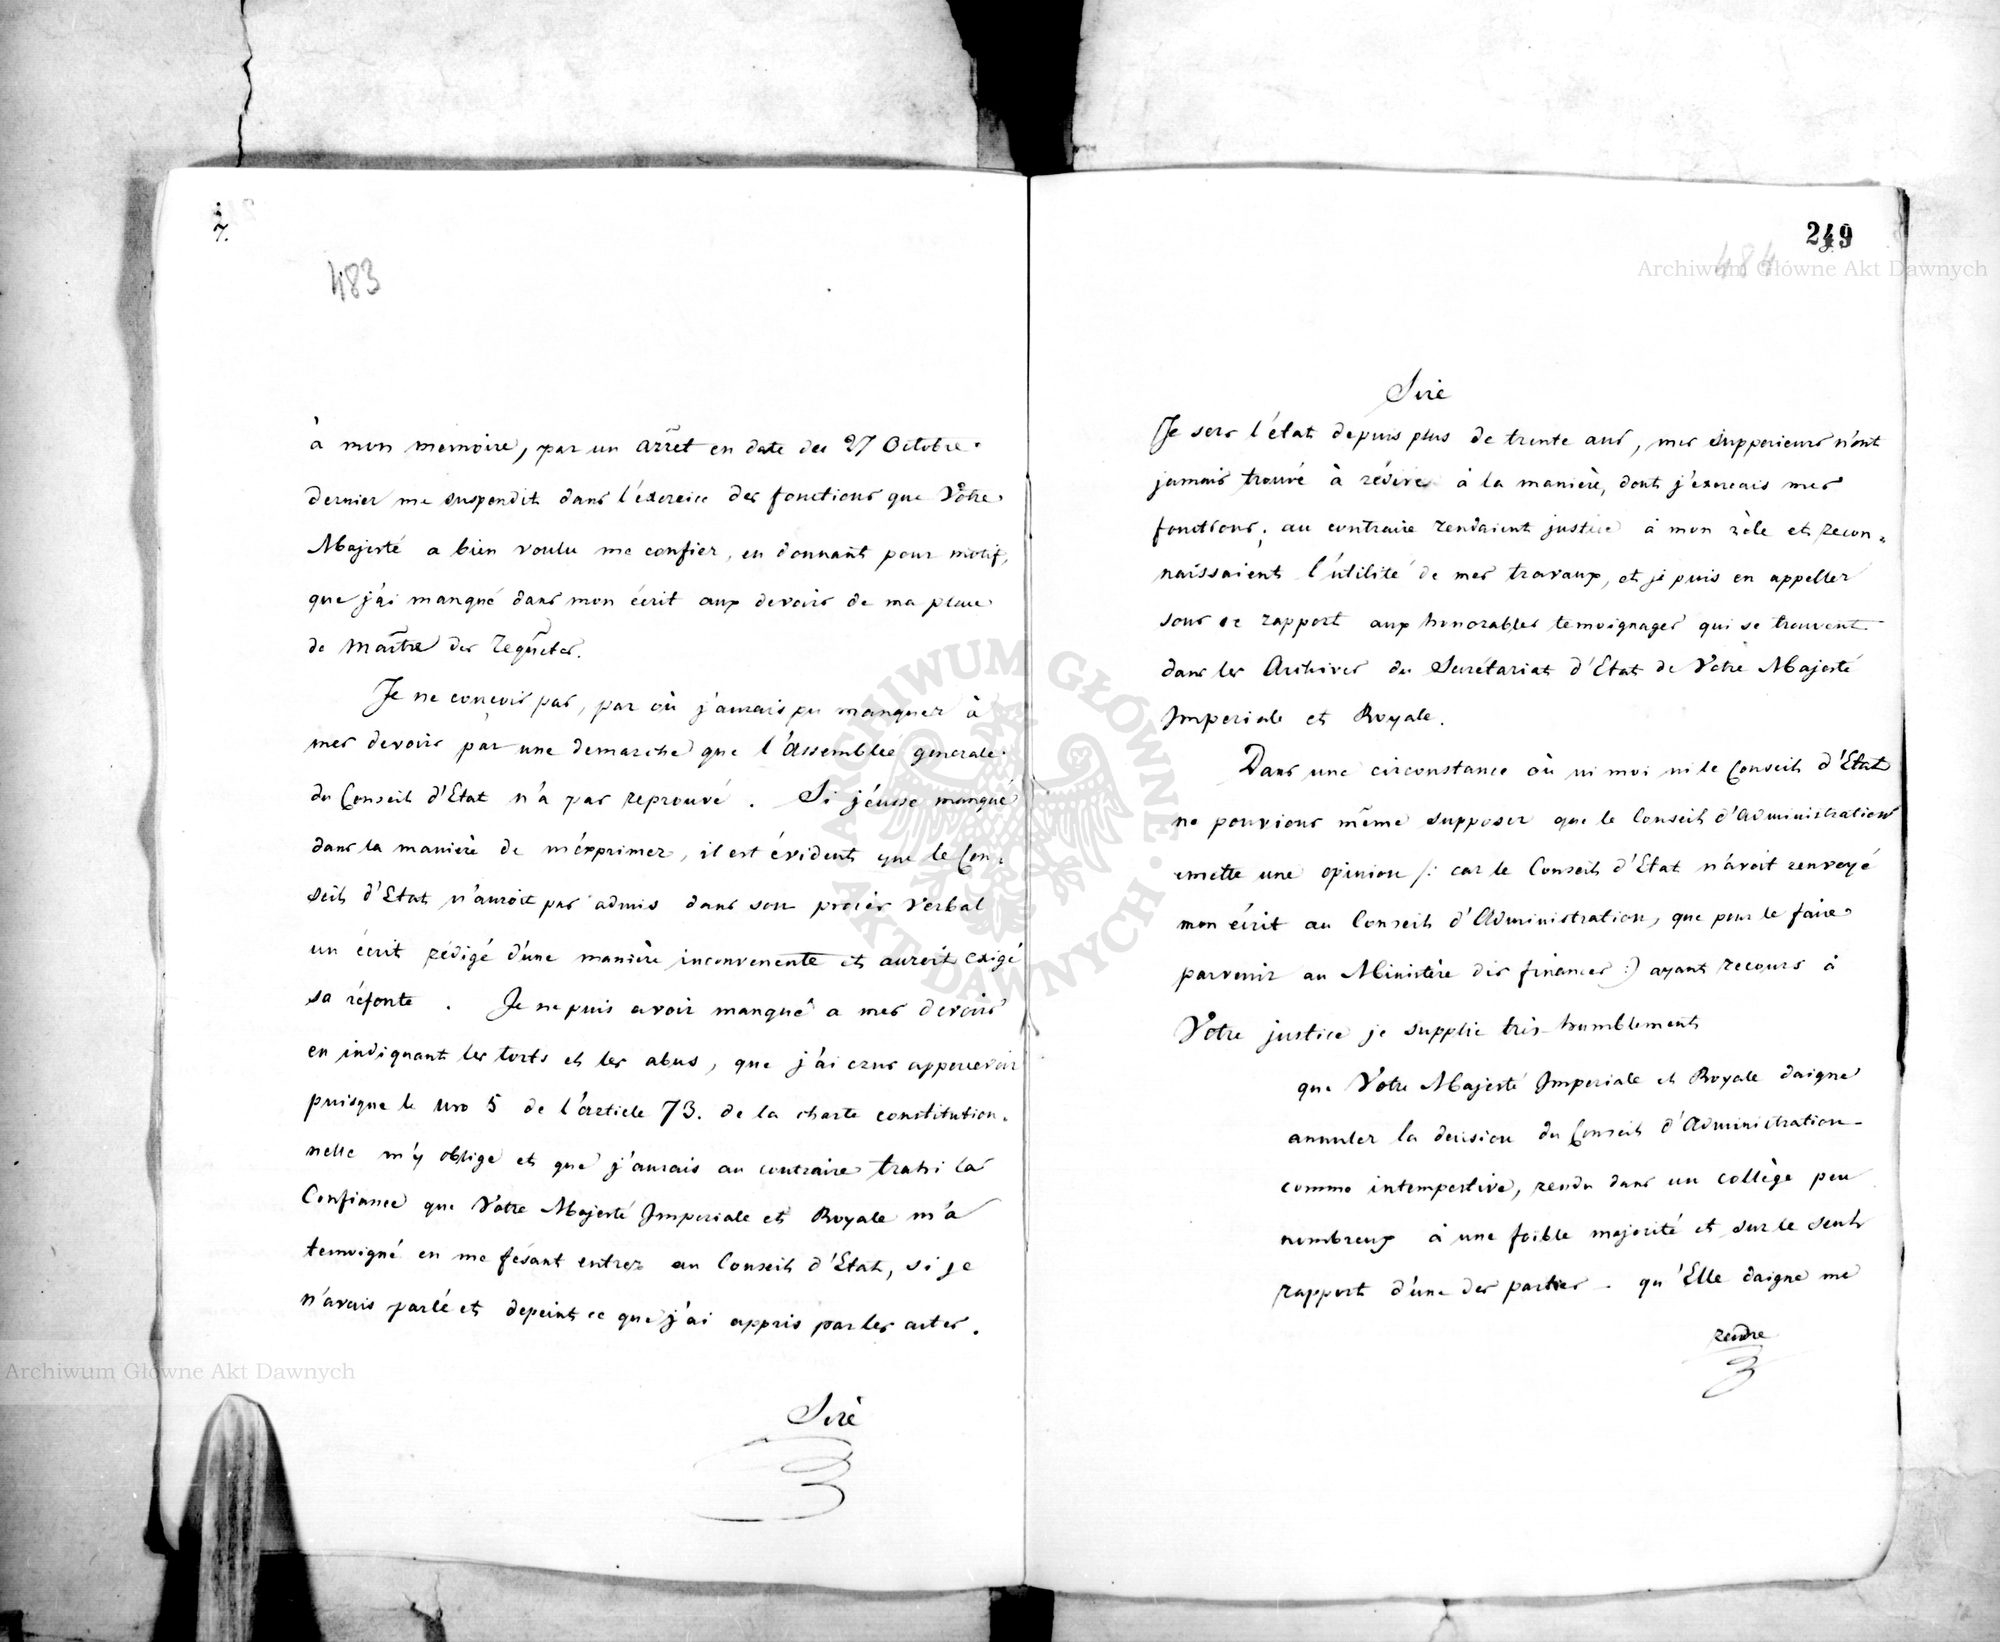 7.
483
à mon memoire, par un arrêt en date du 27 Octobre
dernier me suspendit dans l'éxercice des fonctions que Vôtre
Majesté a bien voulu me confier, en donnant pour motif,
que j'ai manqué dans mon écrit aux devoirs de ma place
de Maître des requêtes.
Je ne conçois pas, par où j'aurais pu manquer à
mes devoirs par une demarche que l'Assemblée generale
du Conseil d'Etat n'a pas reprouvé. Si j'éusse manqué
dans la manière de m'éxprimer, il est évident que le Con-
seil d'Etat n'auroit pas admis dans son procès verbal
un écrit rédigé d'une manière inconvenente et auroit exigé
sa réfonte. Je ne puis avoir manqué a mes devoirs
en indiquant les torts et les abus, que j'ai crus appercevoir
puisque le Nro 5 de l'article 73. de la charte constitution-
nelle m'y oblige et que j'aurais au contraire trahi la
Confiance que Votre Majesté Imperiale et Royale m'a
temoigné en me fésant entrer au Conseil d'Etat, si je
n'avais parlé et depeint ce que j'ai appris par les actes.
Sire
249
484
Archiwum Główne Akt Dawnych
Sire
Je sers l'état depuis plus de trente ans, mes supperieurs n'ont
jamais trouvé à rédire à la manière, dont j'éxercais mes
fonctions; au contraire rendaient justice à mon zèle et recon-
naissaient l'utilité de mes travaux, et je puis en appeller
sous ce rapport aux honorables temoignages qui se trouvent
dans les Archives du Secrétariat d'Etat de Votre Majesté
Imperiale et Royale.
Dans une circonstance où ni moi ni le Conseil d'Etat
ne pouvions même supposer que le Conseil d'Administration
emette une opinion /: car le Conseil d'Etat n'avoit renvoyé
mon écrit au Conseil d'Administration, que pour le faire
parvenir au Ministère des finances :) ayant recours à
Votre justice je supplie très-humblement
que Votre Majesté Imperiale et Royale daigne
annuler la decision du Conseil d'Administration
comme intempestive, rendu dans un collège peu
nombreux à une foible majorité et sur le seul
rapport d'une des parties - qu'Elle daigne me
rendre
ARCHIWUM GŁÓWNE · AKT DAWNYCH ·
Archiwum Główne Akt Dawnych